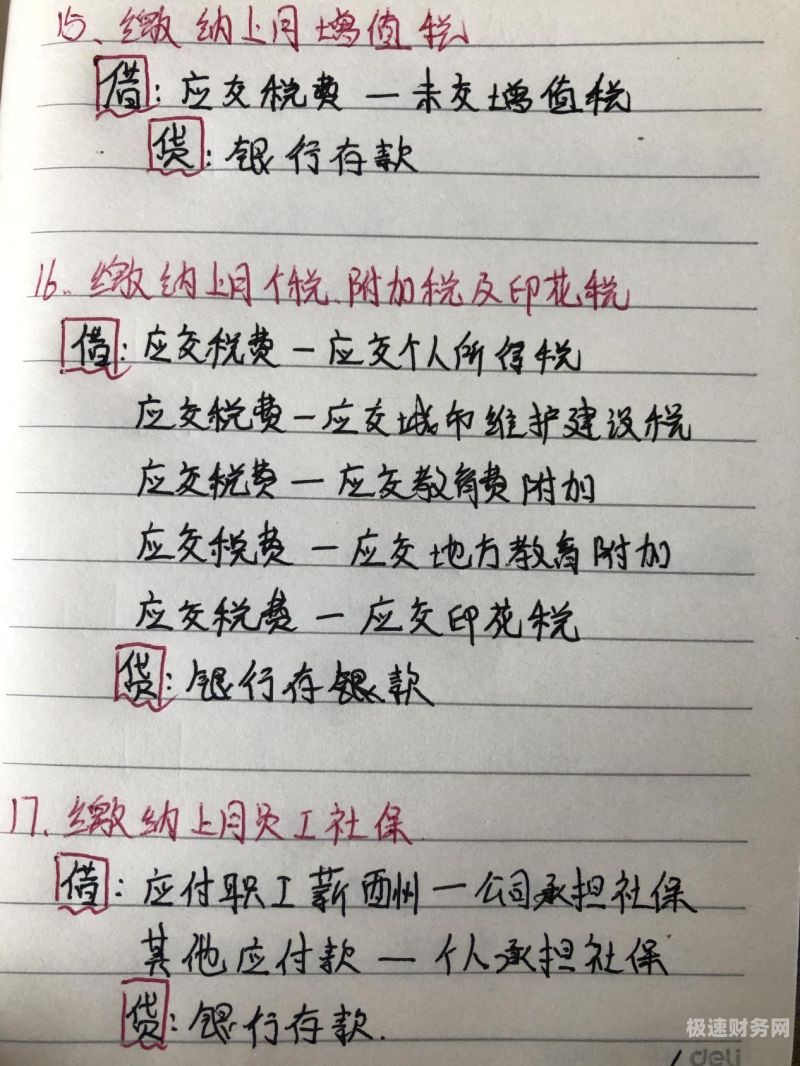 15、缴纳上月增值税
借：应交税费—未交增值税
贷：银行存款
16、缴纳上月个税、附加税及印花税
借：应交税费—应交个人所得税
应交税费—应交城市维护建设税
应交税费—应交教育费附加
应交税费—应交地方教育附加
应交税费—应交印花税
贷：银行存银款
17、缴纳上月员工社保
借：应付职工薪酬—公司承担社保
其他应付款—个人承担社保
贷：银行存款.
极速财务网
deli